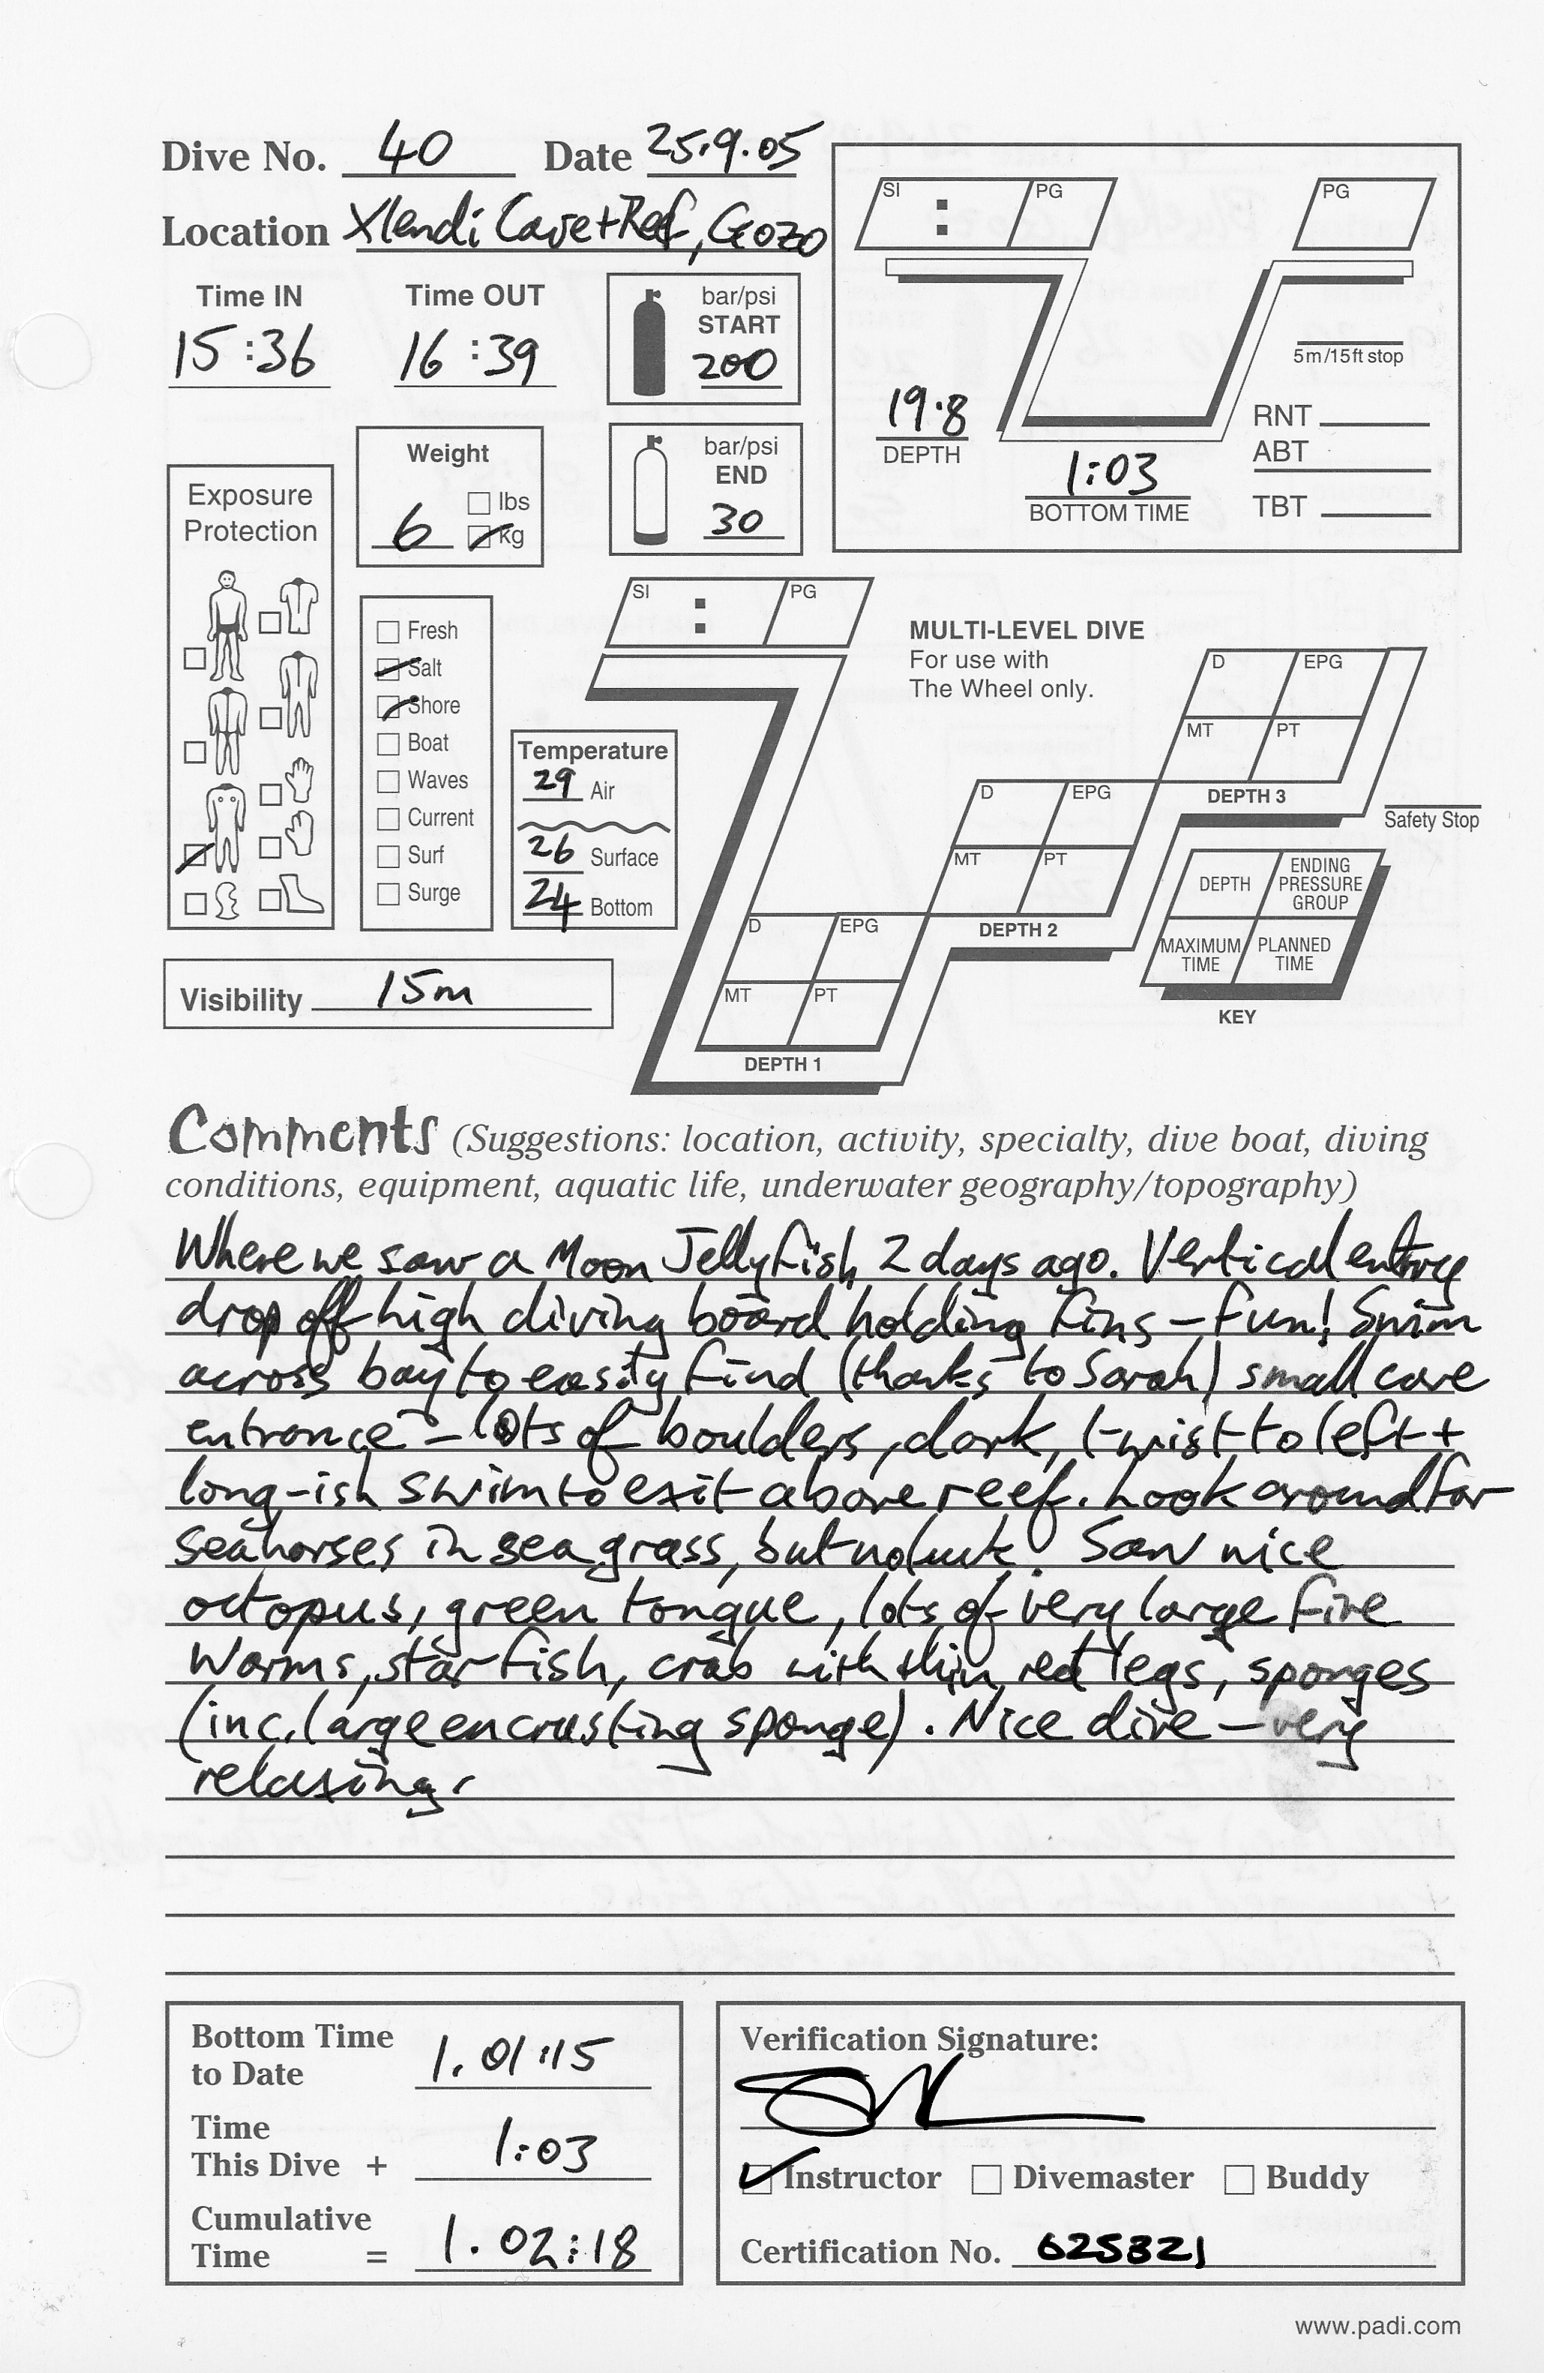 Dive No. 40 Date 25.9.05
Location Xlendi Cave + Reef, Gozo
Time IN Time OUT
15:36 16:39
bar/psi
START
200
bar/psi
END
30
Weight
lbs
6 kg
Exposure
Protection
Fresh
Salt
Shore
Boat
Waves
Current
Surf
Surge
Temperature
29 Air
26 Surface
24 Bottom
Visibility 15m
SI : PG PG
5m/15ft stop
19.8
DEPTH
1:03
BOTTOM TIME
RNT
ABT
TBT
SI : PG
MULTI-LEVEL DIVE
For use with
The Wheel only.
D EPG
MT PT
DEPTH 3
Safety Stop
D EPG
MT PT
DEPTH 2
D EPG
MT PT
DEPTH 1
DEPTH ENDING PRESSURE GROUP
MAXIMUM TIME PLANNED TIME
KEY
Comments (Suggestions: location, activity, specialty, dive boat, diving
conditions, equipment, aquatic life, underwater geography/topography)
Where we saw a Moon Jellyfish 2 days ago. Vertical entry
drop off high diving board holding fins – fun! Swim
across bay to easily find (thanks to Sarah) small cave
entrance – lots of boulders, dark, twist to left +
long-ish swim to exit above reef. Look around for
seahorses in sea grass, but no luck. Saw nice
octopus, green tongue, lots of very large fire
worms, starfish, crab with thin red legs, sponges
(inc. large encrusting sponge). Nice dive – very
relaxing.
Bottom Time
to Date 1.01:15
Time
This Dive + 1:03
Cumulative
Time = 1.02:18
Verification Signature:
Instructor Divemaster Buddy
Certification No. 625321
www.padi.com